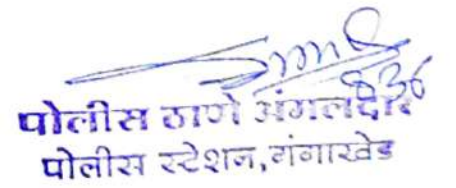 836
पोलीस ठाणे अंमलदार
पोलीस स्टेशन,गंगाखेड